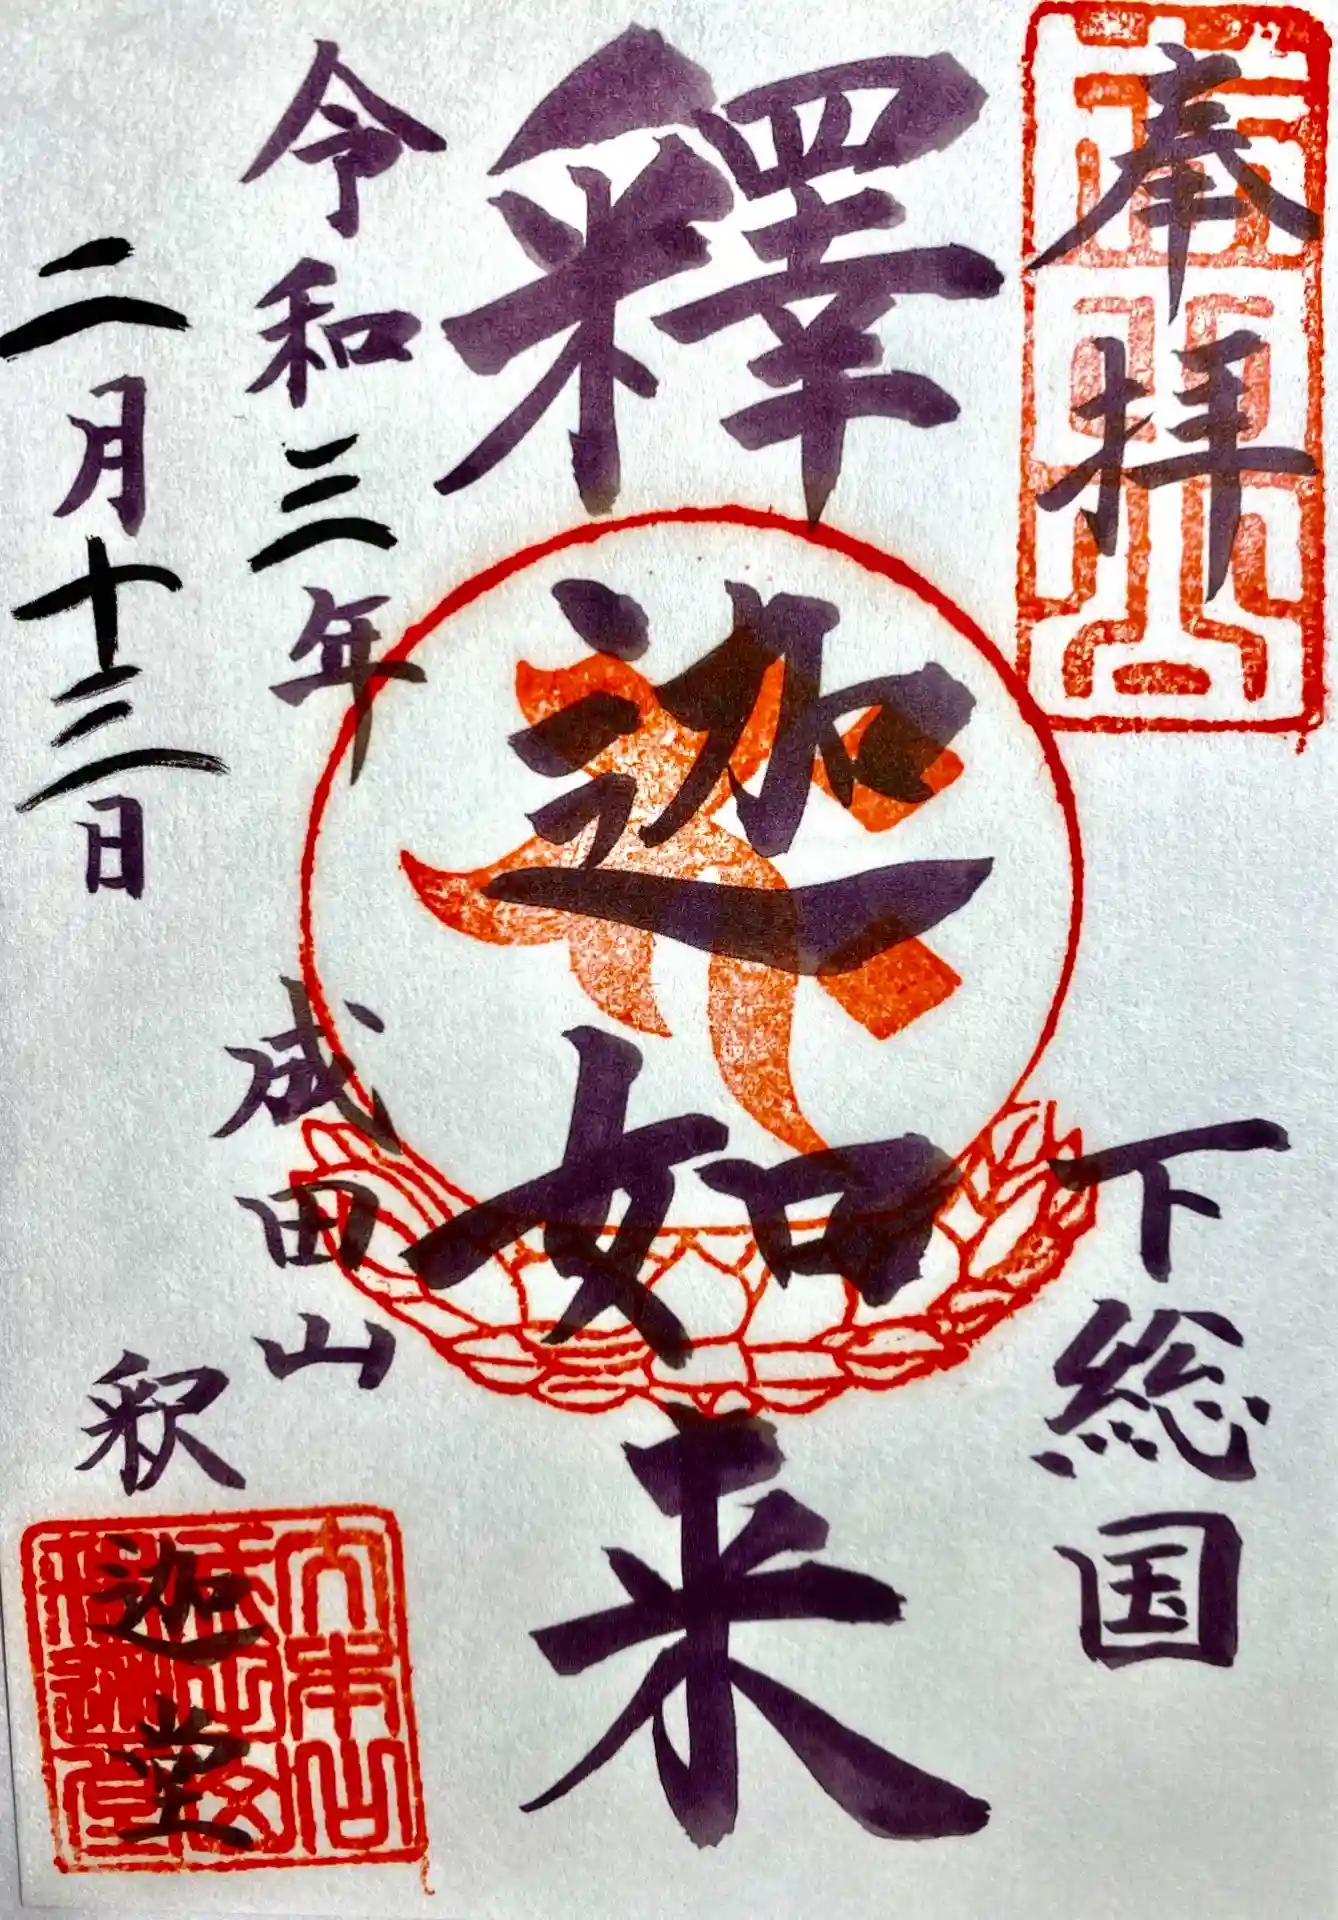 奉拝
下総国
釋迦如来
令和三年
二月十三日
成田山
釈迦堂